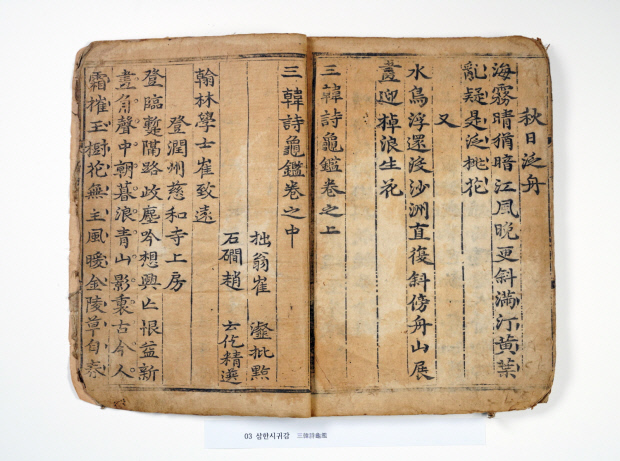 秋日泛舟
海霧晴猶暗江風晩更斜滿汀黃葉
亂疑是泛桃花
又
水鳥浮還没沙洲直復斜傍舟山展
畫迎棹浪生花
三韓詩龜鑑卷之上
三韓詩龜鑑卷之中
拙翁崔 瀣批點
石磵趙 云仡精選
翰林學士崔致遠
登潤州慈和寺上房
登臨蹔隔路歧塵吟想興亡恨益新
畫角聲中朝暮浪青山影裏古今人
霜摧玉樹花無主風暖金陵草自春
03 삼한시귀감 三韓詩龜鑑